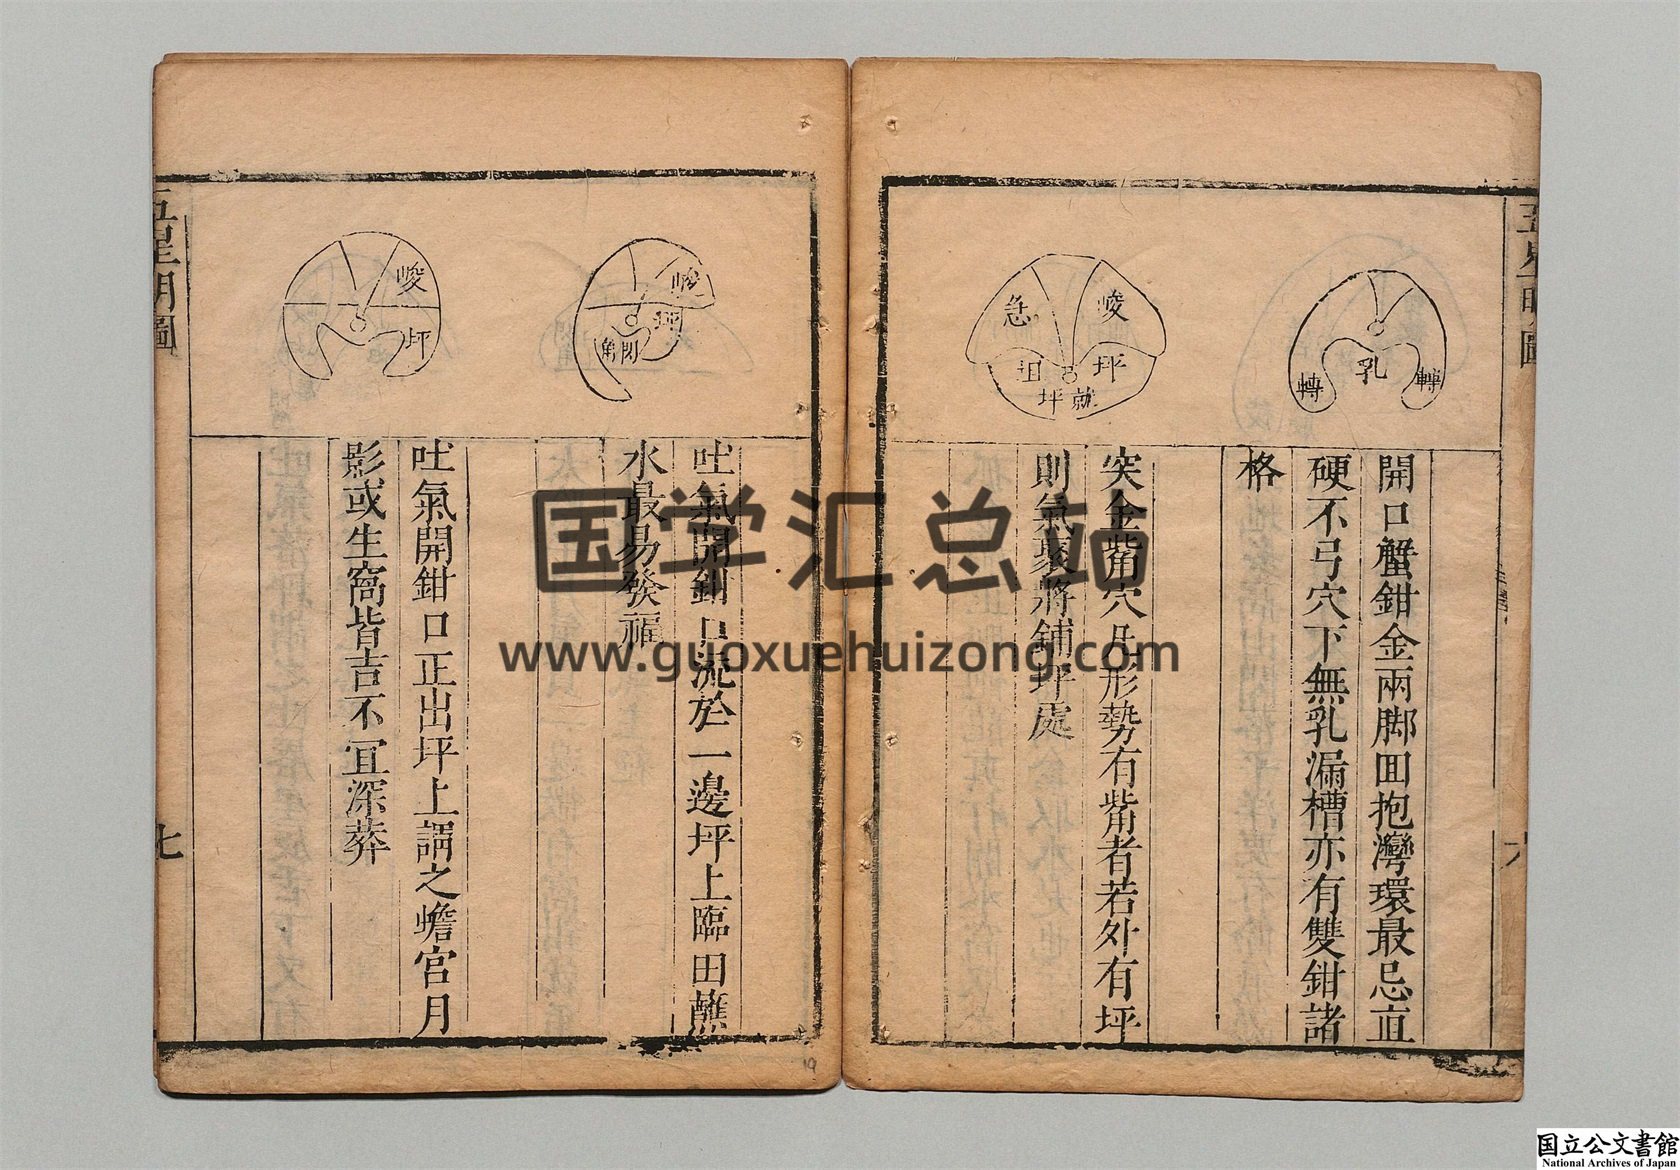 五星明圖
轉
乳
轉
開口蟹鉗金兩脚囬抱灣環最忌直
硬不弓穴下無乳漏槽亦有雙鉗諸
格
峻
急
坪
坦
就
坪
突金觜角穴凡形勢有觜者若外有坪
則氣聚將鋪坪處
峻
坪
吐氣開鉗口流於一邊坪上臨田蘸
水最易發福
峻
坪
吐氣開鉗口正出坪上謂之蟾宮月
影或生窩皆吉不宜深葬
五星明圖
七
19
国学汇总站
www.guoxuehuizong.com
国立公文書館
National Archives of Japan